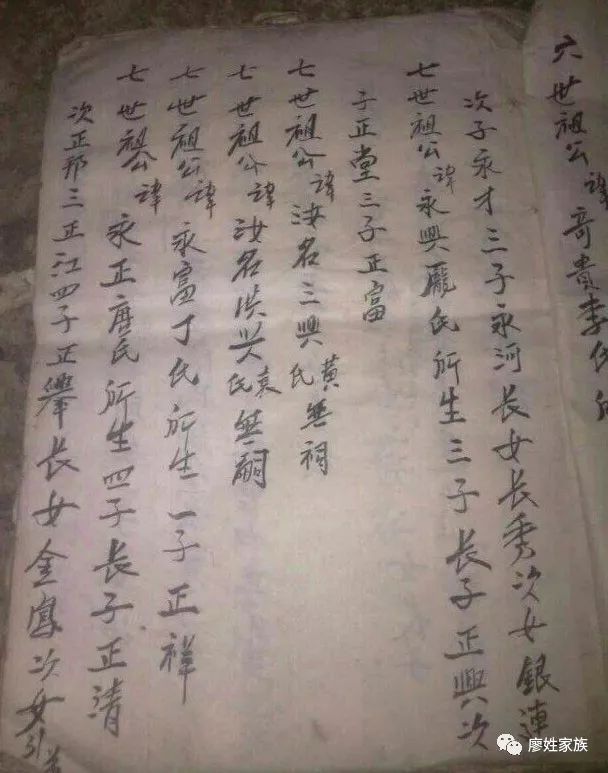 六世祖公諱奇貴李氏所
次子永才三子永河长女长秀次女銀連
七世祖公諱永興龐氏所生三子长子正興次
子正堂三子正富
七世祖公諱汝名三興黄氏無祠
七世祖公諱汝名洪兴袁氏無嗣
七世祖公諱永富丁氏所生一子正祥
七世祖公諱永正唐氏所生四子长子正清
次正邦三正江四子正舉长女金鳳次女
廖姓家族